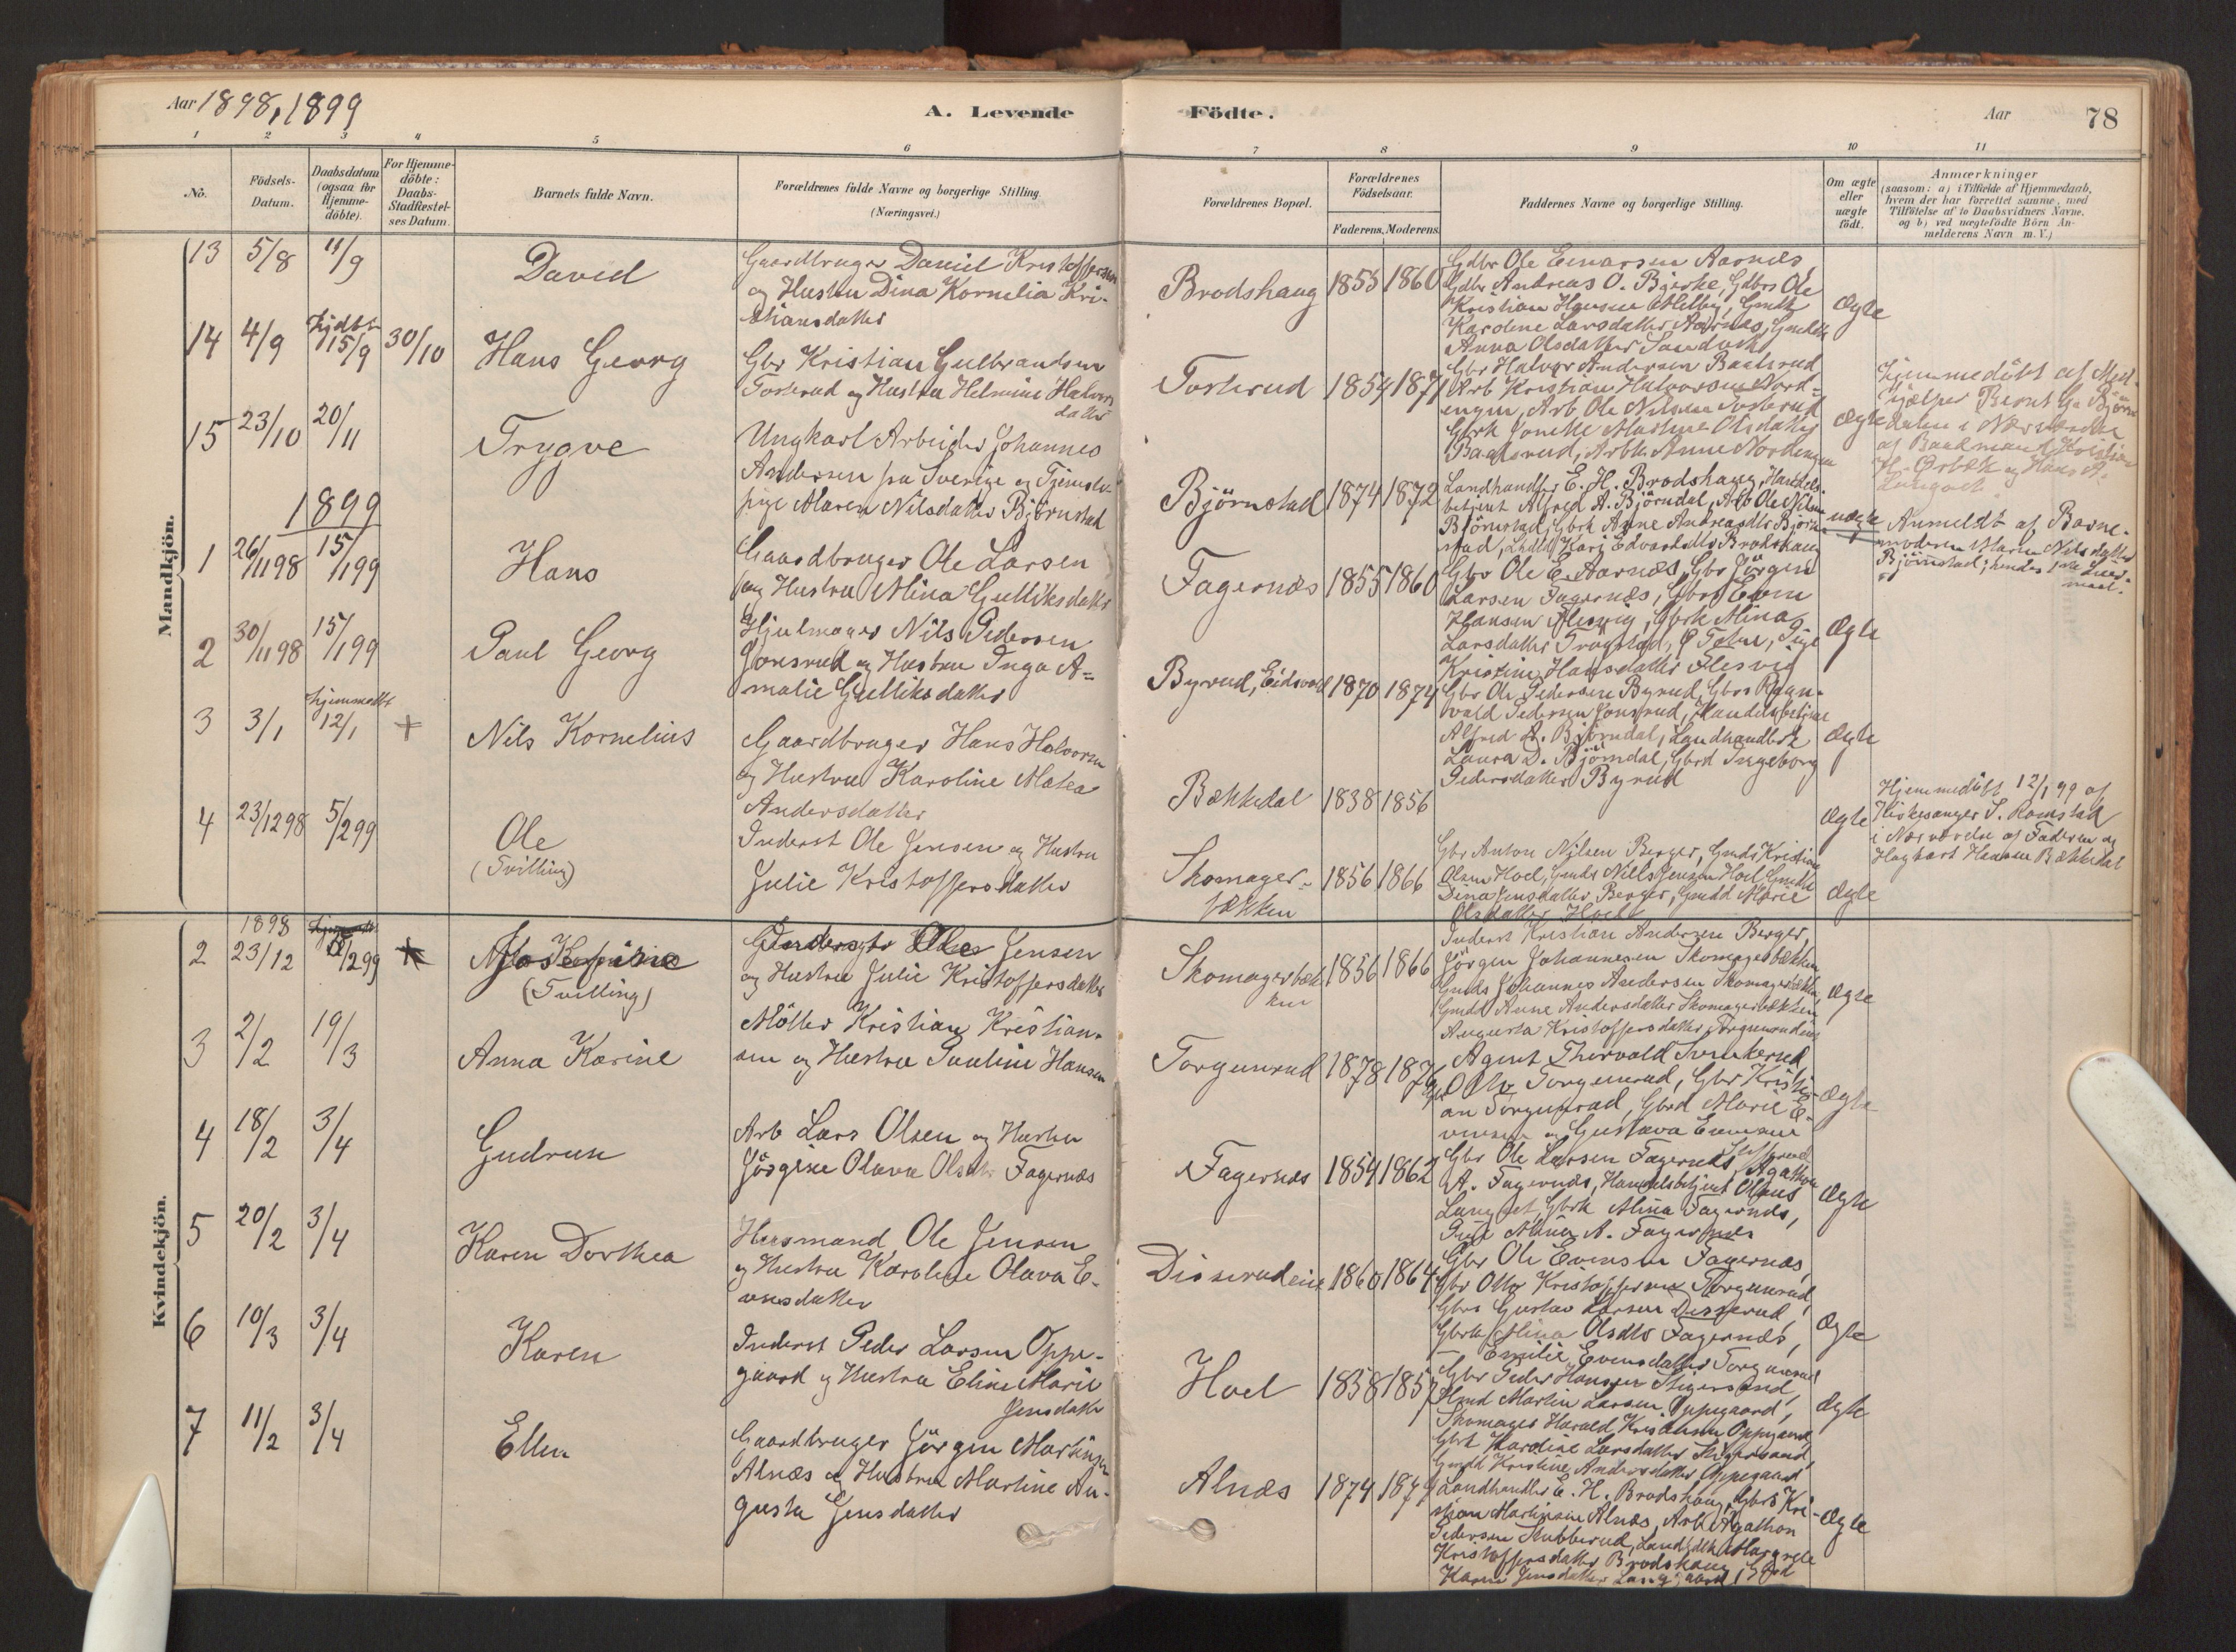 Aar 1898, 1899
A. Levende
Födte.
Aar
78
1 2 3 4 5 6
7 8 9 10 11
No.
Födsels-
Datum.
Daabsdatum
(ogsaa for
Hjemme-
döbte).
For Hjemme-
döbte:
Daabs-
Stadfæstel-
ses Datum.
Barnets fulde Navn.
Forældrenes fulde Navne og borgerlige Stilling.
(Næringsvei.)
Forældrenes Bopæl.
Forældrenes
Födselsaar.
Faderens. Moderens.
Faddernes Navne og borgerlige Stilling.
Om ægte
eller
uægte
födt.
Anmærkninger
(saasom: a) i Tilfælde af Hjemmedaab,
hvem der har forrettet samme, med
Tilföielse af to Daabsvidners Navne,
og b) ved uægtefödte Börn An-
melderens Navn m. V.)
Mandkjön.
13 5/8 11/9
David
Gaardbruger Daniel Kristoffersen
og Hustru Dina Kornelia Kri-
stiansdatter
Brodshaug 1855 1860
Gdbr Ole Evensen Aarnæs,
Gdbr Andreas O. Bjerke, Gdbrs Ole
Kristian Hansen Melby, Gmdk
Karoline Larsdatter Aarnæs, Gmdk
Anna Olsdatter
Ægte
14 4/9 hjdbt 15/9 30/10
Hans Georg
Gbr Kristian Gulbrandsen
Tosterud og Hustru Helmine Halvors
datter
Tosterud 1854 1871
Gbr Halvor Andersen Baalsrud
Arb Kristian Halvorsen Nord-
engen, Arb Ole Nilsen Tosterud
Gbrk Jonette Mathea Olsdatter
Baalsrud, Arbk Anne Nordengen
Ægte
Hjemmedöbt af Med-
hjælper Bernt Bjørn
dalen i Nærværelse
af Baadmand Kristian
H. Ørbæk og Hans A.
Langvet
15 23/10 20/11
Trygve
Ungkarl Arbeider Johannes
Andersen fra Sverige og Tjeneste-
pige Maren Nilsdatter Björnstad
Björnstad 1874 1872
Landhandler E. H. Brodshaug, Handels-
betjent Alfred A. Björndal, Arb Ole Nilsen
Björnstad, Gbrk Anne Andreasdtr Björn
stad, Lhdlk Kari Edvardsdtr Brodshaug
uægte
Anmeldt af Barne-
moderen Maren Nilsdatter
Björnstad; hendes 1ste Leier-
maal.
1899
1 26/11 98 15/1 99
Hans
Gaardbruger Ole Larsen
og Hustru Mina Gulliksdatter
Fagernæs 1855 1860
Gbr Ole E. Aarnæs, Gbr Jörgen
Larsen Fagernæs, Gbrs Even
Hansen Flesvig, Gbrk Mina
Larsdatter Trogstad, Ø Toten, Pige
Kristine Hansdatter Flesvig
Ægte
2 30/11 98 15/1 99
Paul Georg
Hjulmager Nils Pedersen
Jonsrud og Hustru Inga A-
malie Gulliksdatter
Byrud, Eidsvold 1870 1874
Gbr Ole Pedersen Byrud, Gbrs Ragn-
vald Pedersen Jonsrud, Handelsbetjent
Alfred A. Björndal, Landhandlersk
Laura D. Björndal, Gbrd Ingeborg
Pedersdatter Byrud
Ægte
3 3/1 hjemmedbt 12/1 +
Nils Kornelius
Gaardbruger Hans Halvorsen
og Hustru Karoline Matea
Andersdatter
Bækkedal 1838 1856
Ægte
Hjemmedöbt 12/1 99 af
Kirkesanger S. Ramstad
i Nærværelse af Faderen og
Haghart Hansen Bækkedal
4 23/12 98 5/2 99
Ole
(Tvilling)
Inderst Ole Jensen og Hustru
Julie Kristoffersdatter
Skomager-
bækken
1856 1866
Gbr Anton Nilsen Berger, Gmds Kristian
Olsen Hoel, Gmds Nils Jensen Hoel, Gmdk
Dina Jensdatter Berger, Gmdd Marie
Olsdatter Hoel
Ægte
Kvindekjön.
1898
2 23/12 5/2 99
Josefine
(Tvilling)
Inderst Ole Jensen
og Hustru Julie Kristoffersdatter
Skomagerbæk
ken
1856 1866
Inderst Kristian Andersen Berger,
Jörgen Johannesen Skomagerbækken
Gmds Johannes Andersen Skomagerbækken,
Gmdk Anne Andersdatter Skomagerbækken
Augusta Kristoffersdatter Torgunrudeie
Ægte
3 2/2 19/3
Anna Karine
Möller Kristian Kristian-
sen og Hustru Pauline Hansen
Torgunrud 1878 1876
Agent Thorvald Svenkerud,
Gbr Otto Torgunrud, Gbr Kristi-
an Torgunrud, Gbrd Marie E-
vensen og Gustava Evensen
Ægte
4 18/2 3/4
Gudrun
Arb Lars Olsen og Hustru
Jörgine Olava Olsdtr Fagernæs
Fagernæs 1854 1862
Gbr Ole Larsen Fagernæs, Agathon
A. Fagernæs, Handelsbetjent Olaus
Langvet, Gbrk Mina Fagernæs,
Pige Mina A. Fagernæs
Ægte
5 20/2 3/4
Karen Dorthea
Husmand Ole Jensen
og Hustru Karoline Olava E-
vensdatter
Disserudeie 1860 1864
Gbr Ole Evensen Fagernæs,
Gbr Otto Kristoffersen Torgunrud,
Gbrs Gustav Larsen Disserud,
Gbrk Mina Olsdtr Fagernæs,
Emilie Evensdatter Torgunrud
Ægte
6 10/3 3/4
Karen
Inderst Peder Larsen Oppe-
gaard og Hustru Eline Marie
Jensdatter
Hoel 1838 1857
Gbr Peder Hansen Stigersand,
Gmd Martin Larsen Oppegaard,
Skomager Harald Kristiansen Oppegaard
Gbrk Karoline Larsdatter Stigersand,
Gmdk Kristine Andersdatter Oppegaard
Ægte
7 11/2 3/4
Ellen
Gaardbruger Jörgen Martinsen
Alnæs og Hustru Martine Au-
gusta Jensdatter
Alnæs 1874 1874
Landhandler E. H. Brodshaug, Gbrs Kri-
stian Martinsen Alnæs, Arb Agathon
Pedersen Stubberud, Landhdlk Margrete
Kristoffersdatter Brodshaug
Karen Jensdatter Langgaard
Ægte